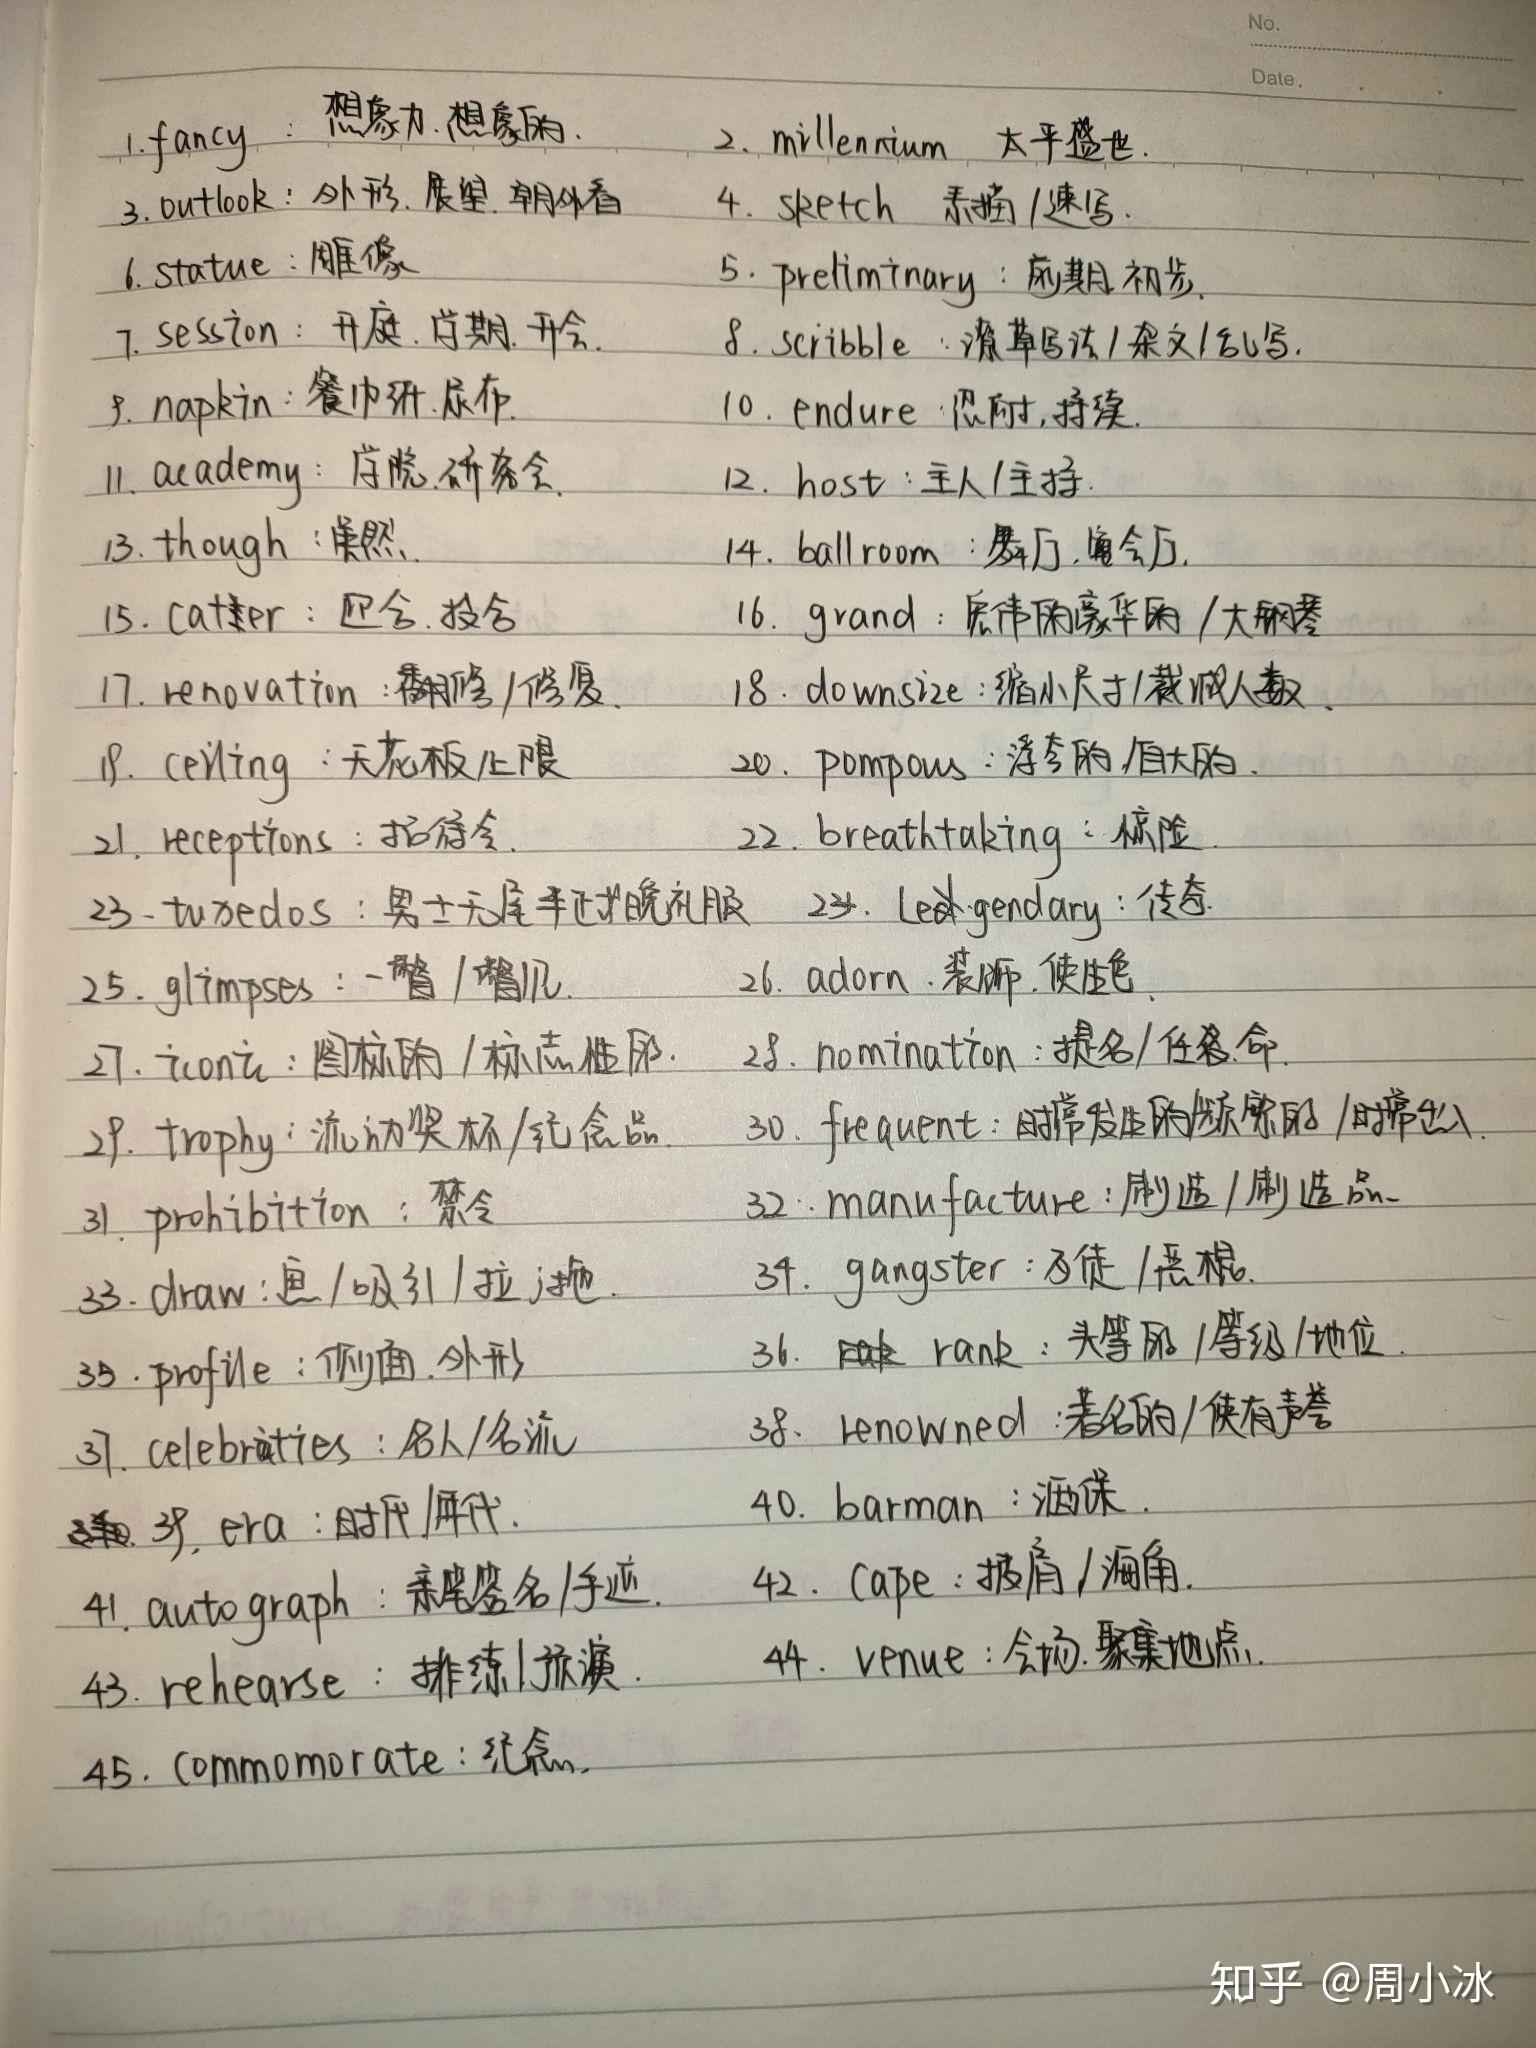 No.
Date.
1. fancy : 想象力.想象的. 2. millennium 太平盛世.
3. outlook : 外形.展望.朝外看 4. sketch 素描/速写.
6. statue : 雕像 5. preliminary : 前期.初步.
7. session : 开庭.学期.开会. 8. scribble : 潦草写法/杂文/乱写.
9. napkin : 餐巾纸.尿布. 10. endure : 忍耐,持续.
11. academy : 学院.研究会. 12. host : 主人/主持.
13. though : 虽然. 14. ballroom : 舞厅.宴会厅.
15. cater : 迎合.投合 16. grand : 宏伟的豪华的/大钢琴
17. renovation : 翻修/修复. 18. downsize : 缩小尺寸/裁减人数.
19. ceiling : 天花板/上限 20. pompous : 浮夸的/自大的.
21. receptions : 招待会. 22. breathtaking : 惊险.
23. tuxedos : 男士无尾半正式晚礼服 24. legendary : 传奇.
25. glimpses : 一瞥/瞥见. 26. adorn . 装饰.使生色.
27. iconic : 图标的/标志性的. 28. nomination : 提名/任命.
29. trophy : 流动奖杯/纪念品. 30. frequent : 时常发生的/频繁的/时常出入.
31. prohibition : 禁令 32. manufacture : 制造/制造品.
33. draw : 画/吸引/拉/拖. 34. gangster : 歹徒/恶棍.
35. profile : 侧面.外形 36. rank : 头等的/等级/地位.
37. celebrities : 名人/名流 38. renowned : 著名的/使有声誉
39. era : 时代/年代. 40. barman : 酒保.
41. autograph : 亲笔签名/手迹. 42. cape : 披肩/海角.
43. rehearse : 排练/预演. 44. venue : 会场.聚集地点.
45. commomorate : 纪念.
知乎 @周小冰